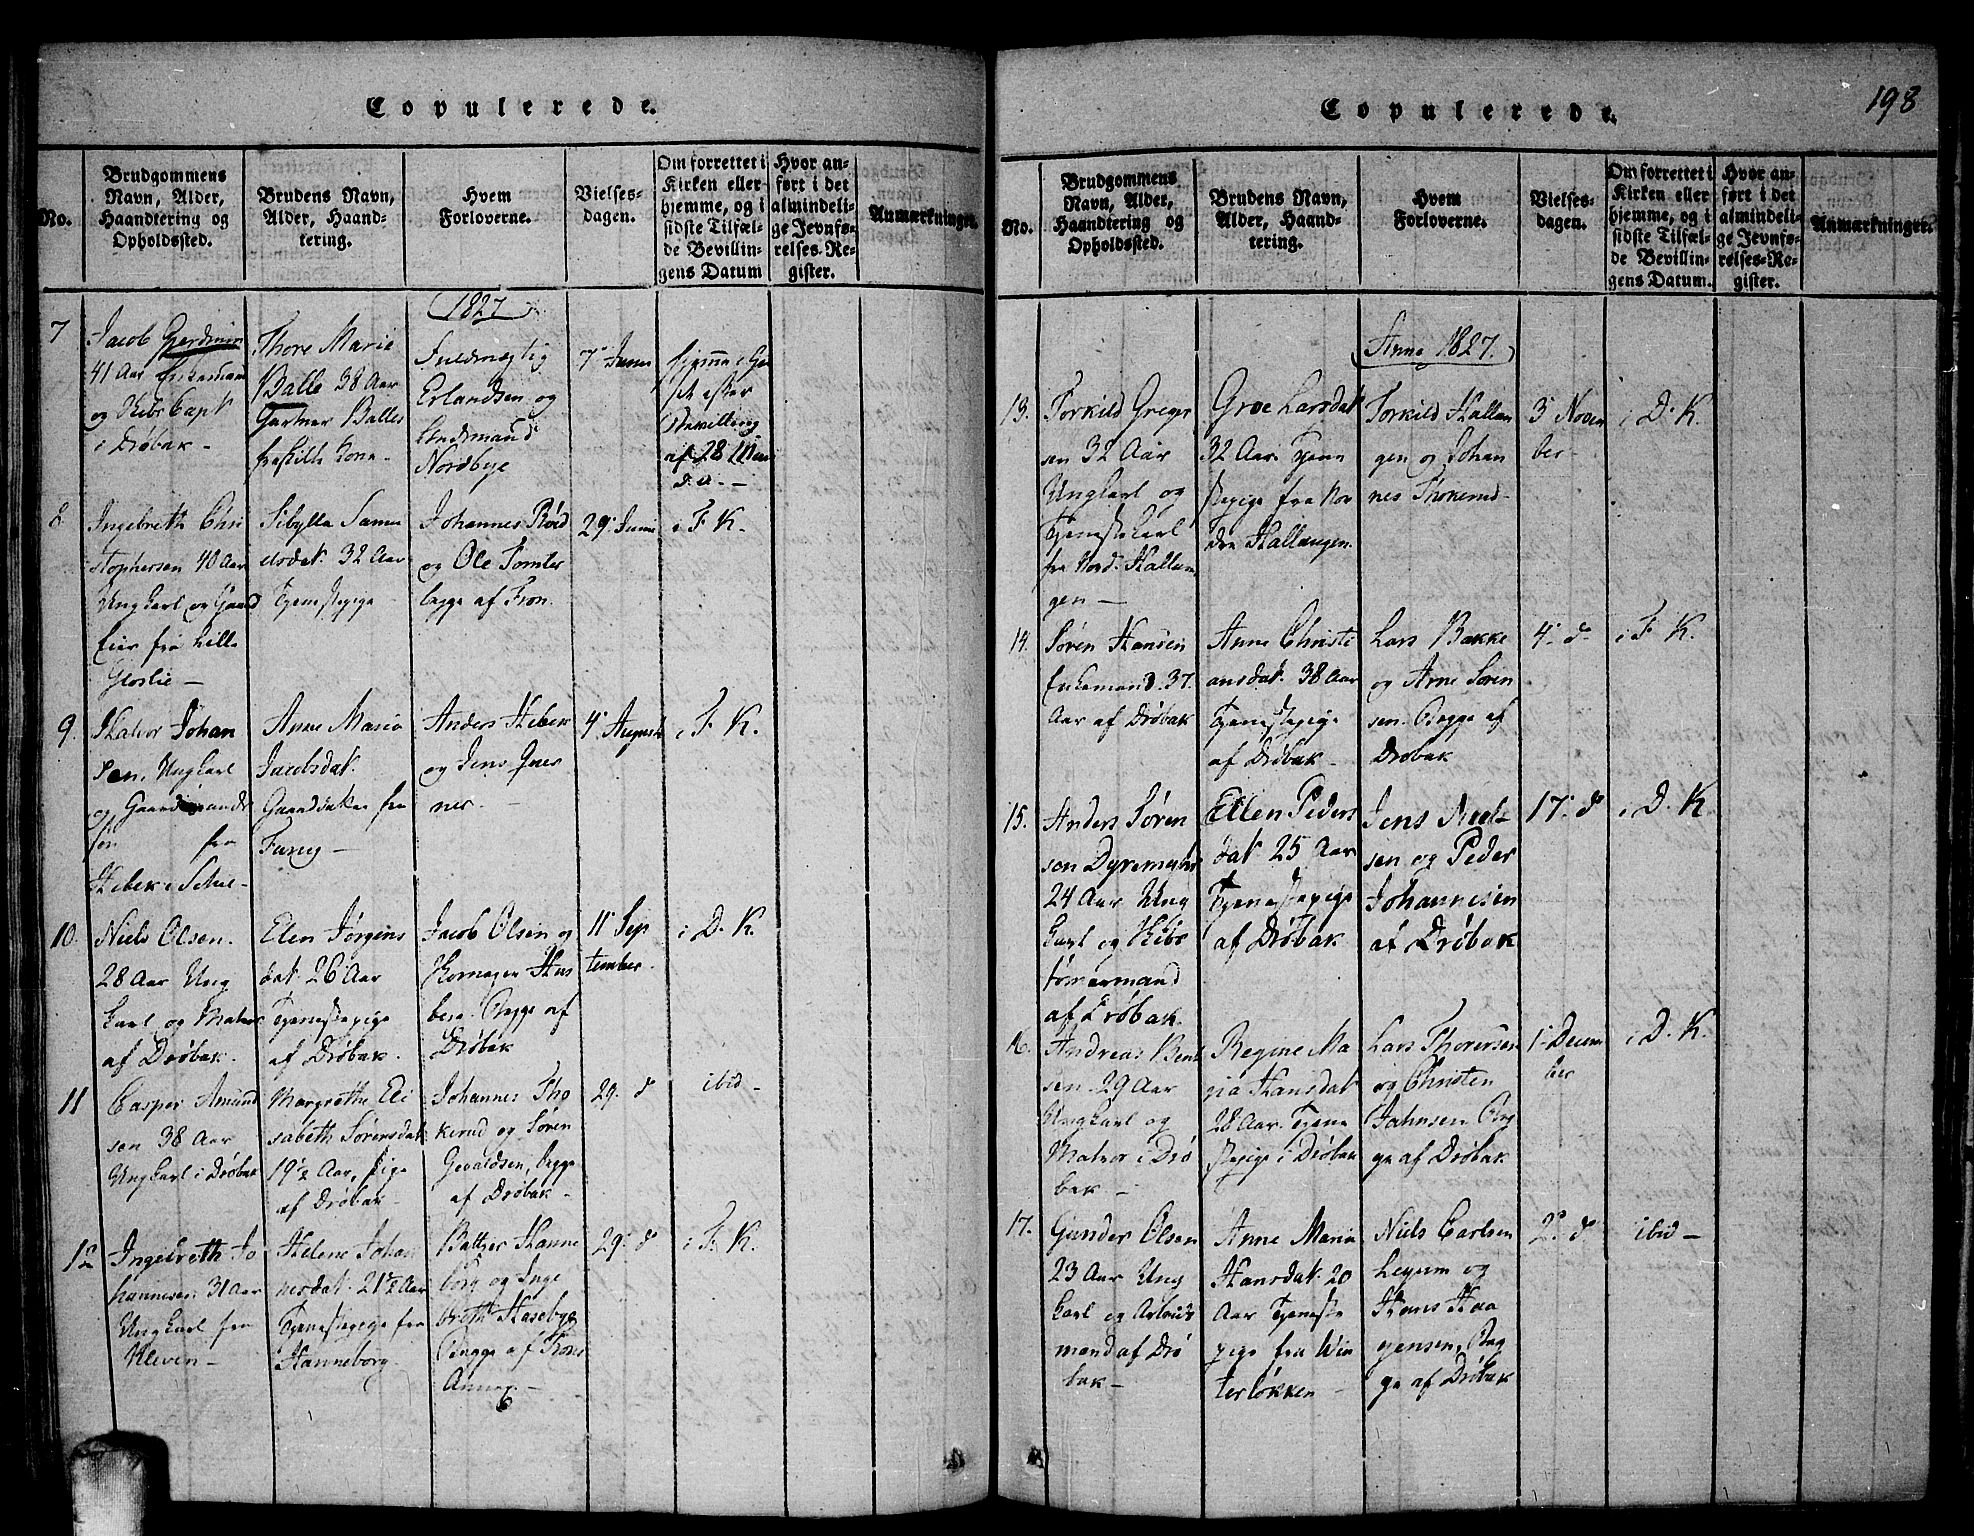 Copulerede.
No.
Brudgommens
Navn, Alder,
Haandtering og
Opholdssted.
Brudens Navn,
Alder, Haand-
tering.
Hvem
Forloverne.
Vielses-
dagen.
Om forrettet i
Kirken eller
hjemme, og i
sidste Tilfæl-
de Bevillin-
gens Datum
Hvor an-
ført i det
almindeli-
ge Jevnfø-
relses-Re-
gister.
Anmærkninger.
1827
7
Jacob
41 Aar Enkemand
og Skibs Capt
i Drøbak -
Thore Marie
Balle 38 Aar
Gartner Balles
fraskilte Kone -
Fuldmægtig
Erlandsen og
Nordbye
7 Juni
hjemme i
efter
Bevilling
af 28
d. a. -
8
Ingebreth Chri
stophersen 40 Aar
Ungkarl og Gaard
Eier fra Lille
Gloslie -
Sibylla Samu
elsdat. 32 Aar
Tjenestepige -
Johannes Røed
og Ole Tomter
begge af Fron.
29. Juni
i F. K.
9.
Halvor Johan
sen. Ungkarl
og Gaardmands
søn fra
Anne Maria
Jacobsdat.
Gaarddatter fra
Anders
og Jens
ner. -
4 August
i F. K.
10.
Niels Olsen.
28 Aar Ung
karl og Matros
af Drøbak.
Elen Jørgens
dat. 26 Aar
Tjenestepige
af Drøbak.
Jacob Olsen og
Skomager Hus
berg. Begge af
Drøbak
11 Sep
tember.
i D. K.
11
Casper Amund
sen 38 Aar
Ungkarl i Drøbak
Margrethe Eli
sabeth Sørensdat.
19½ Aar, Pige
af Drøbak -
Johannes Tho
kerud og Søren
Gevaldsen, begge
af Drøbak -
29. d
ibid -
12
Ingebreth Jo
hannesen 31 Aar
Ungkarl fra
Kleven -
Helene Johan
nesdat. 21½ Aar
Tjenestepige fra
Hanneborg -
Battzer Hanne
borg og Inge
breth Haseby
Begge af Frons
Annex -
29. d
i F. K.
Copulerede.
198
No.
Brudgommens
Navn, Alder,
Haandtering og
Opholdssted.
Brudens Navn,
Alder, Haand-
tering.
Hvem
Forloverne.
Vielses-
dagen.
Om forrettet i
Kirken eller
hjemme, og i
sidste Tilfæl-
de Bevillin-
gens Datum.
Hvor an-
ført i det
almindeli-
ge Jevnfø-
relses-Re-
gister.
Anmærkninger.
Anno 1827.
13.
Torkild Greger
sen 32 Aar
Ungkarl og
Tjenestekarl
fra Nord. Hallan
gen -
Groe Larsdat.
32 Aar Tjene
stepige fra Nor
dre Hallangen.
Torkild Hallan
gen og Johan
nes Thokerud -
3 Novem
ber -
i D. K.
14.
Søren Hansen
Enkemand 37
Aar af Drøbak
Anne Christi
ansdat. 38 Aar
Tjenestepige
af Drøbak -
Lars Bakke
og Arne Søren
sen. Begge af
Drøbak
4. d.
i F. K.
15.
Anders Søren
sen Dyremyhr
24 Aar Ung
karl og Skibs
tømermand
af Drøbak.
Ellen Peders
dat. 25 Aar
Tjenestepige
af Drøbak.
Jens Niel-
sen og Peder
Johannesen
af Drøbak
17. d
i D. K.
16.
Andreas Bent
sen 29 Aar
Ungkarl og
Matros i Drø
bak -
Regine Ma
ria Hansdat.
28 Aar. Tjene
stepige i Drøbak
Lars Thoresen
og Christen
Jahnsen Beg
ge af Drøbak
1. Decem
ber
i D. K.
17.
Gunder Olsen
23 Aar Ung
karl og Arbeids
mand af Drø
bak -
Anne Maria
Hansdat. 20
Aar Tjeneste
pige fra Win
terløkken -
Niels Carlsen
og
Hans Haa
gensen, Beg
ge af Drøbak
2. d
ibid -